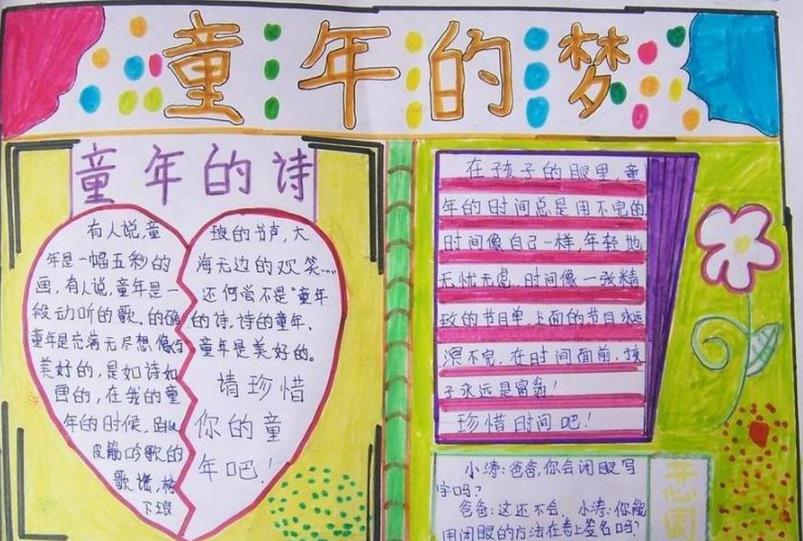 童年的梦
童年的诗
有人说,童
年是一幅五秒的
画,有人说,童年是一
段动听的歌.的确
童年是充满无尽想像与
美好的,是如诗如
画的,在我的童
年的时候,跳
皮筋吟歌的
歌谣,树
下琅
琅的书声,大
海无边的欢笑……
还何尝不是"童年
的诗,诗的童年.
童年是美好的。
请珍惜
你的童
年吧!
在孩子的眼里,童
年的时间总是用不完的
时间像自己一样,年轻地
无忧无虑.时间像一张精
致的节目单,上面的节目永远
演不完.在时间面前,孩
子永远是富翁!
珍惜时间吧!
小涛:爸爸,你会闭眼写
字吗?
爸爸:这还不会,小涛:你能
用闭眼的方法在卷上签名吗?
开心园